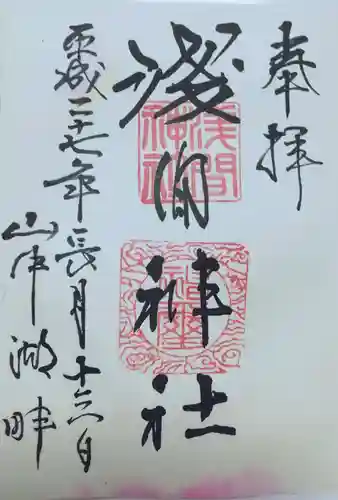 奉拝
淺間神社
平成二十七年長月十六日
山中湖畔
淺間神社